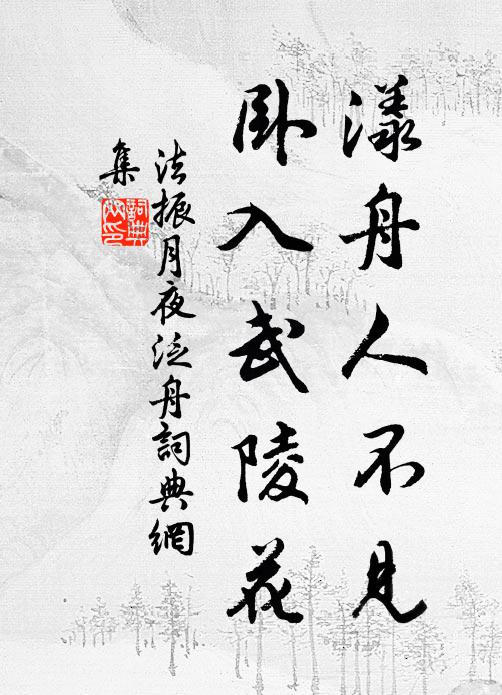 漾舟人不見
臥入武陵花
法振月夜泛舟詞典網
集
詞典網印